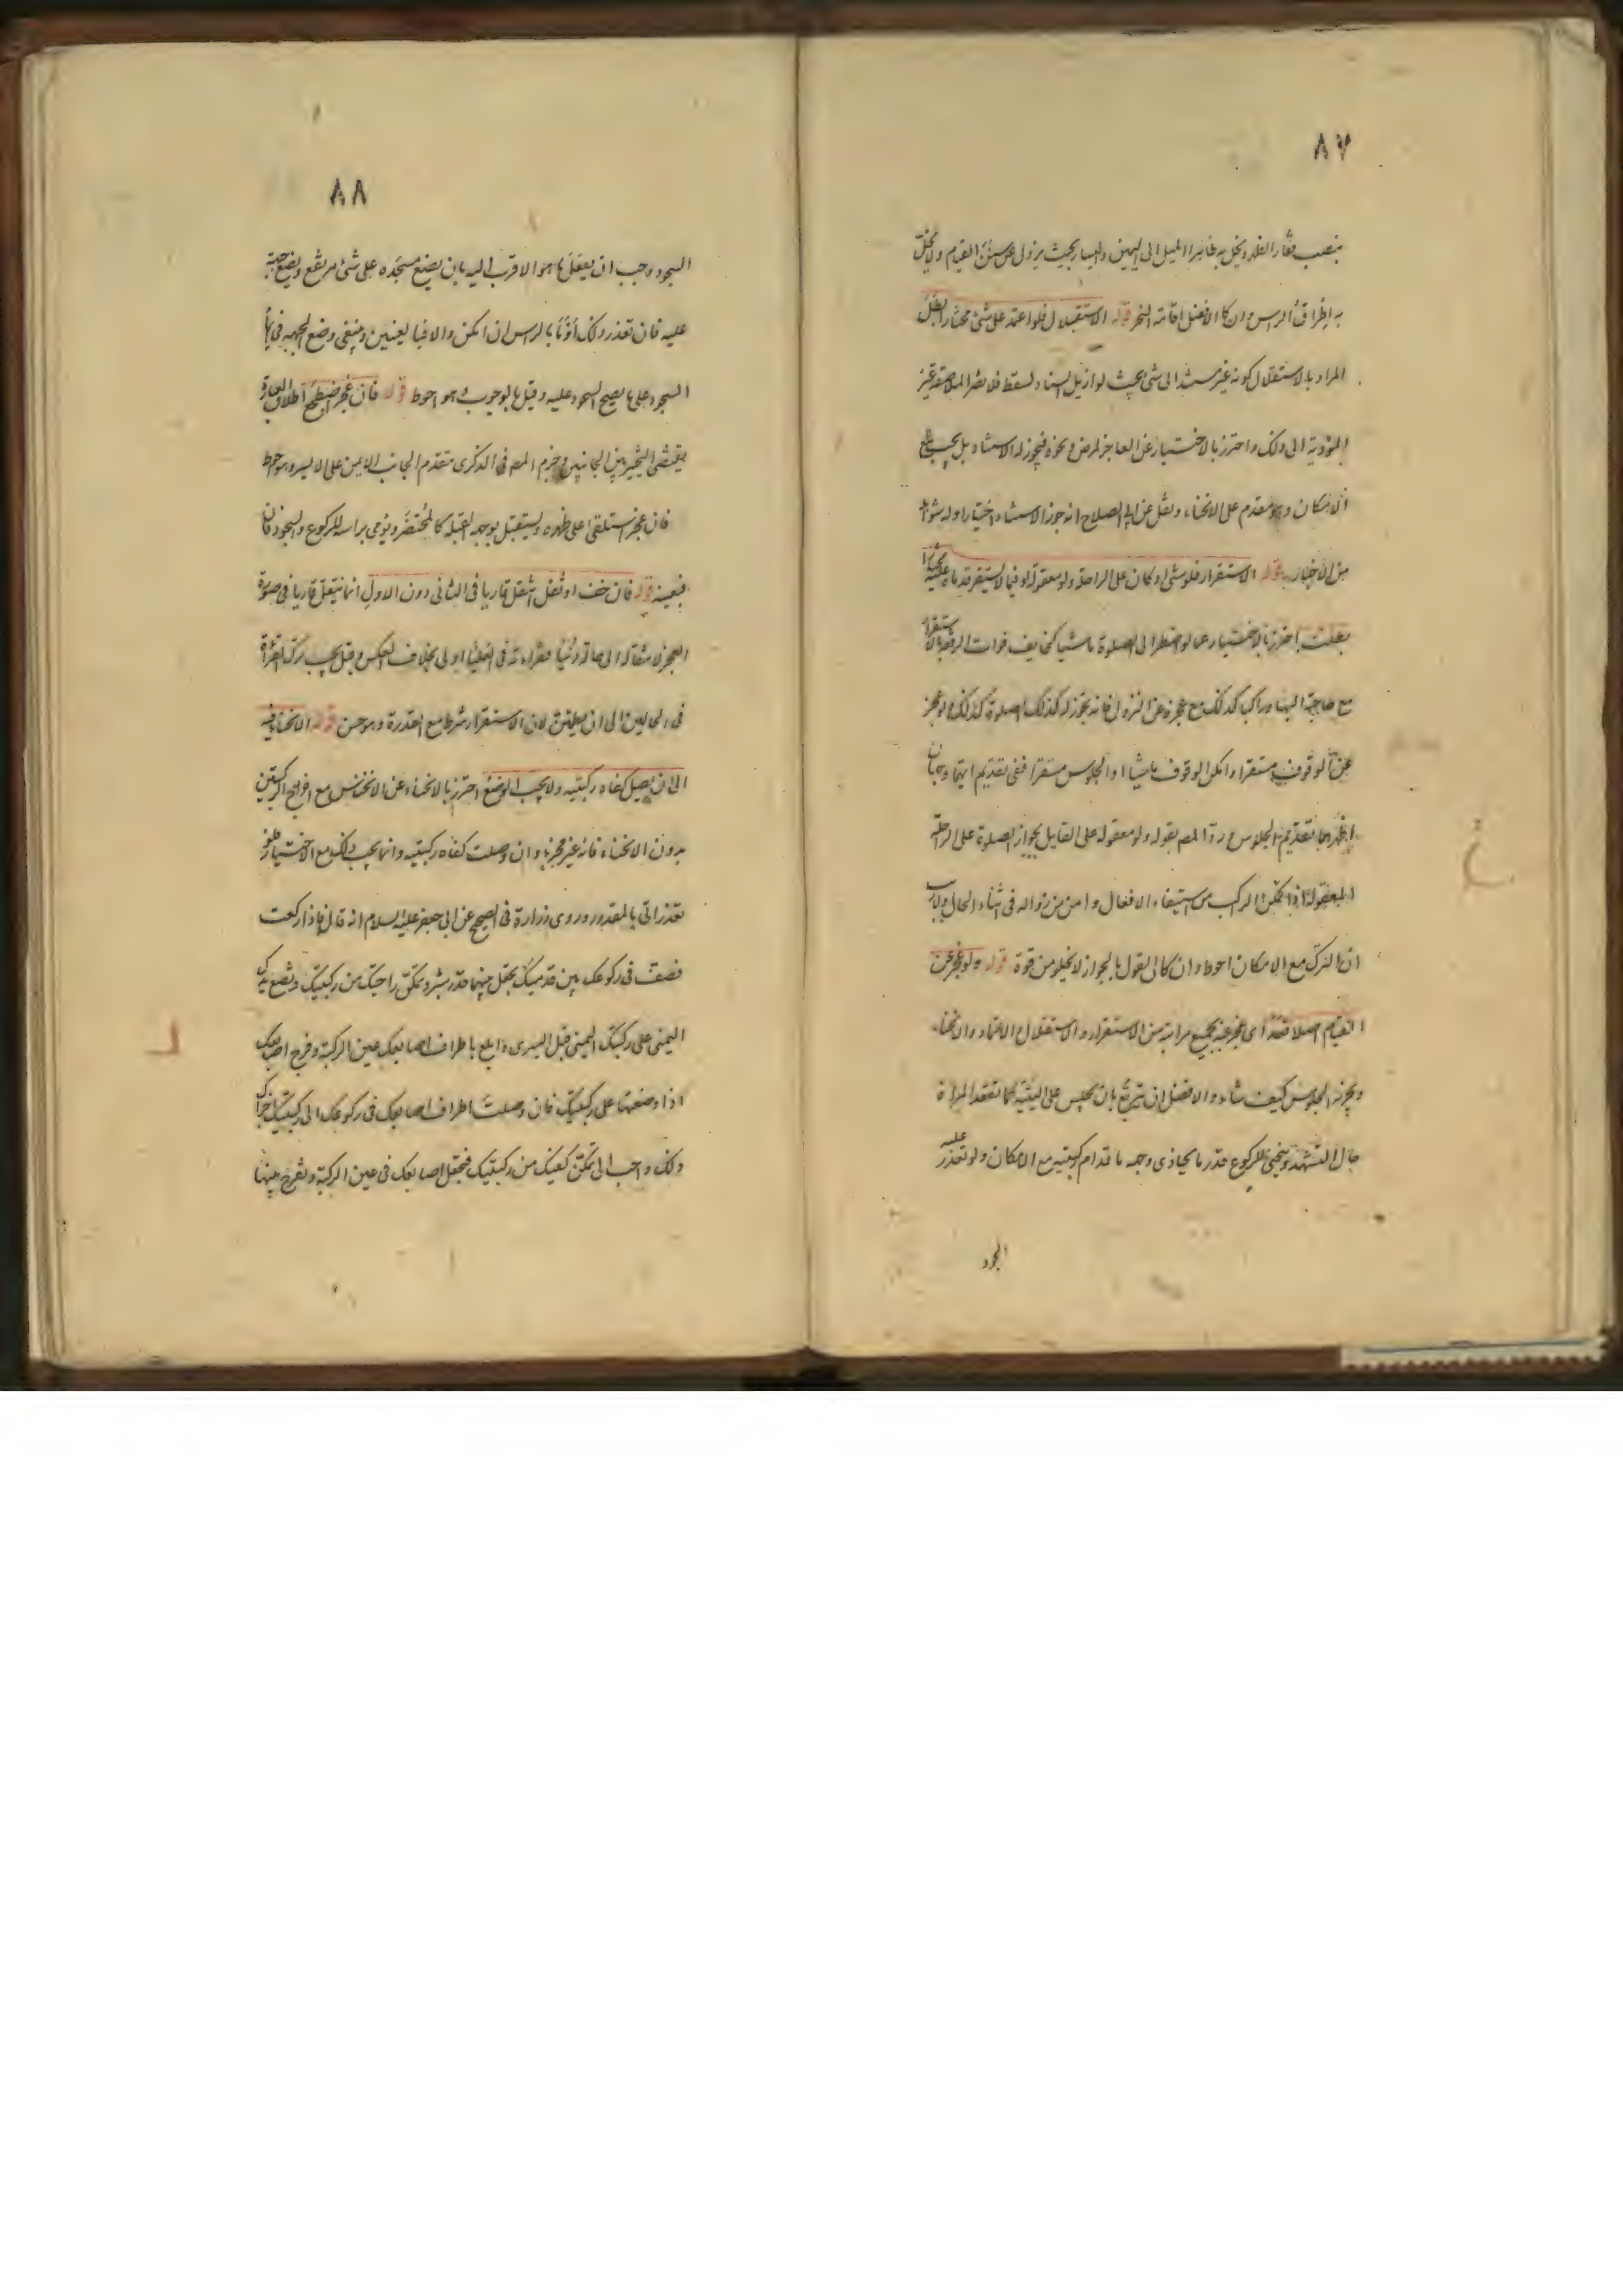 ٨٧
بنصب فقار الظهر ويخل به ظاهرا الميل الى اليمين واليسار بحيث يزول عن سنن القيام ولا يخل
به اطراق الراس وان كان الافضل اقامة النحر قوله الاستقلال فلو اعتمد على شئ مختارا بطل
المراد بالاستقلال كونه غير مستند الى شئ بحيث لو ازيل السناد لسقط فلا تضر الملاصقة غير
المؤدية الى ذلك واحترز بالاختيار عن العاجز لمرض ونحوه فيجوز له الاستناد بل يجب مع
الامكان وهو مقدم على الانحناء ونقل عن ابي الصلاح انه جوز الاستناد اختيارا وله شواهد
من الاخبار قوله الاستقرار فلو مشى او كان على الراحلة ولو معقولة او فيما لا يستقر قدماه عليه مختيرا
بطلت احترز بالاختيار عما لو اضطر الى الصلوة ماشيا كخايف فوات الرفقة بالاستقرار
مع حاجة اليها وراكب كذلك مع عجزه عن النزول فانه يجوز له كذلك الصلوة كذلك ولو عجز
عن الوقوف مستقرا وامكن الوقوف ماشيا او الجلوس مستقرا ففي تقديم ايهما وجهان
اظهرهما تقديم الجلوس ورد المص بقوله ولو معقولة على القايل بجواز الصلوة على الراحلة
المعقولة اذا تمكن الراكب من استيفاء الافعال وامن من زواله في اثناء الحال ولا ريب
ان الترك مع الامكان احوط وان كان القول بالجواز لا يخلو من قوة قوله ولو عجز عن
القيام اصلا قعد اى عجز عنه بجميع مراتبه من الاستقرار والاستقلال والاعتماد والانحناء
ويجزئه الجلوس كيف شاء والافضل ان يتربع بان يجلس على اليتيه كما تقعد المراة
حال التشهد وينحنى للركوع قدر ما يحاذى وجهه ما قدام ركبتيه مع الامكان ولو تعذر عليه
السجود
٨٨
السجود وجب ان يفعل ما هو الاقرب اليه بان يضع مسجده على شئ مرتفع ويضع جبهته
عليه فان تعذر ذلك أومأ بالراس ان امكن والا فبالعينين وينبغى وضع الجبهة في ايماء
السجود على ما يصح السجود عليه وقيل بالوجوب وهو احوط قوله فان عجز اضطجع اطلاق العبارة
يقتضى التخيير بين الجانبين وجزم المص في الذكرى بتقدم الجانب الايمن على الايسر وهو احوط
فان عجز استلقى على ظهره ويستقبل بوجهه القبلة كالمحتضر ويومى براسه للركوع والسجود فان
فبعينه قوله فان خف او ثقل انتقل قاريا في الثانى دون الاول انما ينتقل قاريا في صورة
العجز لانتقاله الى حالة دنيا فقراءته في العليا اولى بخلاف العكس وقيل يجب ترك القراءة
في الحالين الى ان يطمئن لان الاستقرار شرط مع القدرة وهو حسن قوله الانحناء فيه
الى ان يصل كفاه ركبتيه ولا يجب الوضع احترز بالانحناء عن الانخناس مع اخراج الركبتين
بدون الانحناء فانه غير مجزء وان وصلت كفاه ركبتيه وانما يجب ذلك مع الاختيار فلو
تعذر اتى بالمقدور وروى زرارة في الصحيح عن ابى جعفر عليه السلام انه قال فاذا ركعت
فصف في ركوعك بين قدميك تجعل بينهما قدر شبر وتمكن راحتيك من ركبتيك وتضع يدك
اليمنى على ركبتك اليمنى قبل اليسرى وابلع باطراف اصابعك عين الركبة وفرج اصابعك
اذا وضعتها على ركبتيك فان وصلت اطراف اصابعك في ركوعك الى ركبتيك اجزاك
ذلك واحب الى ان تمكن كفيك من ركبتيك فتجعل اصابعك في عين الركبة وتفرج بينها